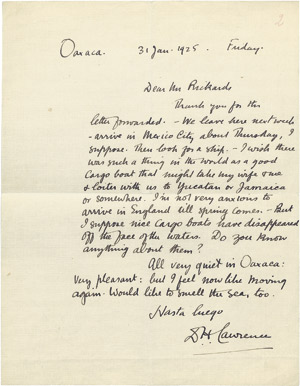 Oaxaca. 31 Jan. 1925. Friday.
Dear Mr Rickards
Thank you for the
letter forwarded. - We leave here next week
- arrive in Mexico City about Thursday, I
suppose. Then look for a ship. - I wish there
was such a thing in the world as a good
Cargo boat that might take my wife & me
& loiter with us to Yucatan or Jamaica
or somewhere. I'm not very anxious to
arrive in England till spring comes. - But
I suppose nice Cargo boats have disappeared
off the face of the waters. Do you know
anything about them?
All very quiet in Oaxaca:
very pleasant: but I feel now like moving
again. Would like to smell the sea, too.
Hasta luego
D H Lawrence